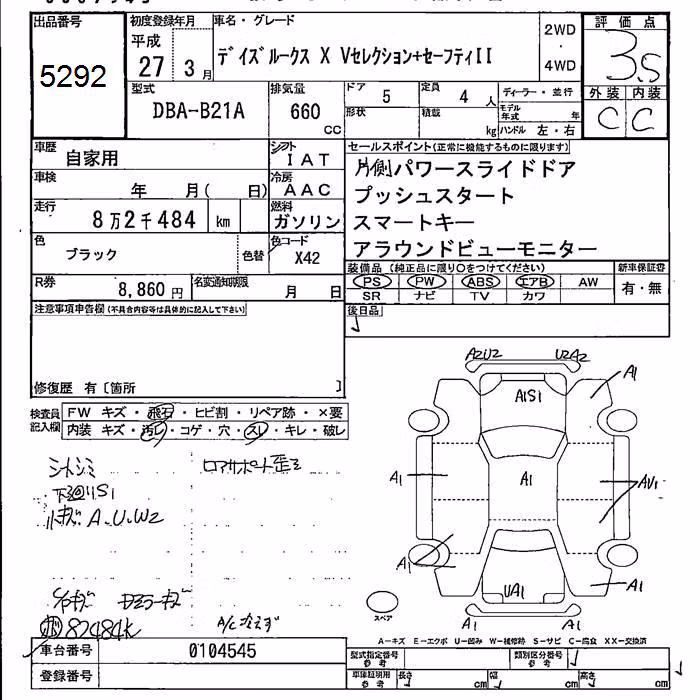 出品番号
5292
初度登録年月
平成
27 3月
車名・グレード
デイズルークス X Vセレクション+セーフティII
2WD
・
4WD
評価点
3.5
外装 内装
C C
型式
DBA-B21A
排気量
660
cc
ドア
5
定員
4 人
形状
積載
kg
ディーラー・並行
モデル年式 年
ハンドル 左・右
車歴
自家用
シフト
IAT
車検
年 月( 日)
冷房
AAC
走行
8万2千484 km
燃料
ガソリン
色
ブラック
色替
色コード
X42
R券
8,860円
名変通知期限
月 日
セールスポイント(正常に機能するものに限ります)
片側パワースライドドア
プッシュスタート
スマートキー
アラウンドビューモニター
装備品(純正品に限り○をつけてください)
新車保証書
PS PW ABS エアB AW
SR ナビ TV カワ
有・無
後日品
注意事項申告欄(不具合内容等は具体的に記入して下さい)
修復歴 有〔箇所 〕
検査員記入欄
FW キズ・飛石・ヒビ割・リペア跡・×要
内装 キズ・汚れ・コゲ・穴・スレ・キレ・破レ
シートシミ
ロアサポート歪ミ
下廻りS1
小キズ A.U.W2
82484K
A2U2 U2A2
A1
A1S1
A1
A1
AU1
A1
UA1
A1
A1 A1
スペア
A-キズ E-エクボ U-凹み W-補修跡 S-サビ C-腐食 XX-交換済
車台番号
0104545
登録番号
型式指定番号
参考
類別区分番号
参考
車庫証明用
参考
長さ cm
幅 cm
高さ cm